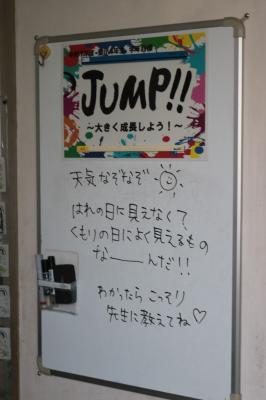 JUMP!!
～大きく成長しよう！～
天気なぞなぞ
はれの日に見えなくて
くもりの日によく見えるもの
な――んだ！！
わかったら こっそり
先生に教えてね♡